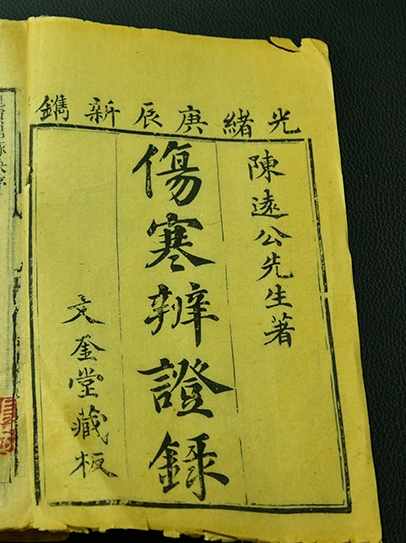 光緒庚辰新鐫
陳遠公先生著
傷寒辨證錄
文奎堂藏板